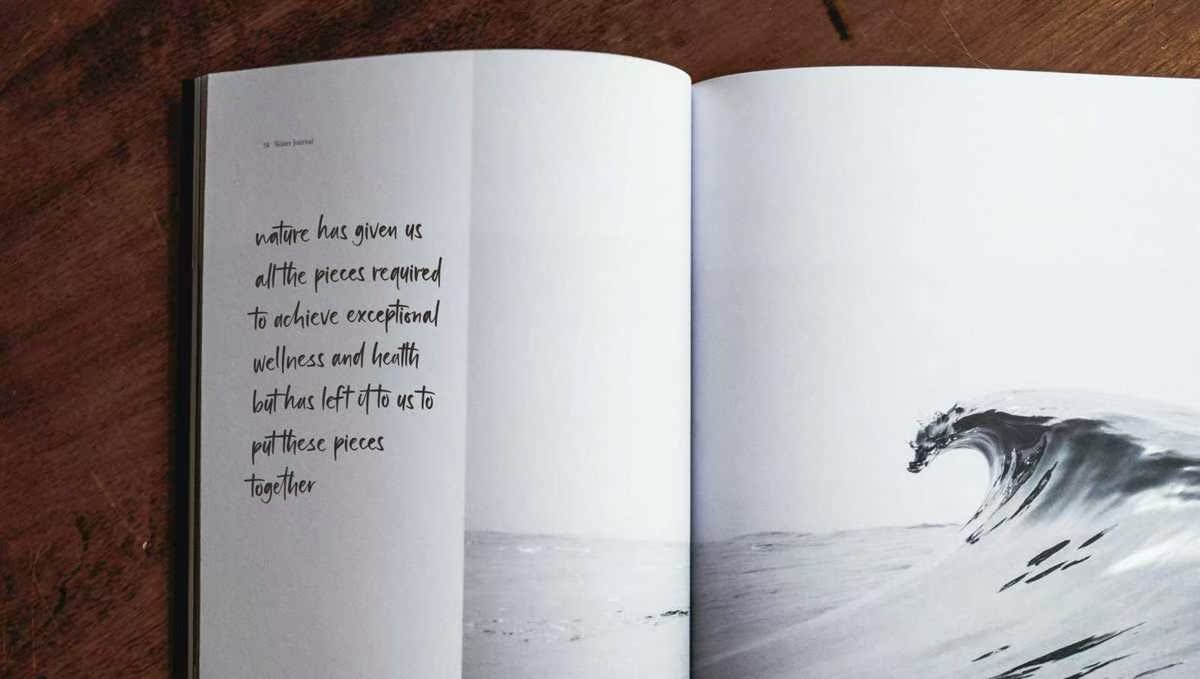 Water Journal
nature has given us
all the pieces required
to achieve exceptional
wellness and health
but has left it to us to
put these pieces
together